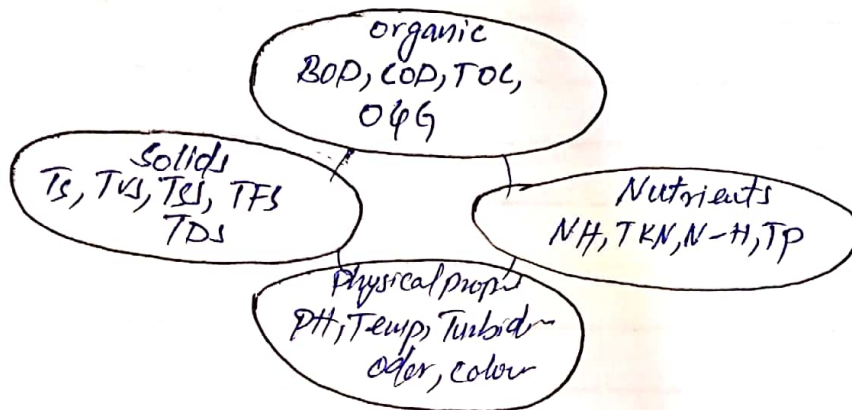 organic
BOD, COD, TOC,
O&G
Solids
TS, TVS, TSS, TFS
TDS
Nutrients
NH, TKN, N-H, TP
physical prop
PH, Temp, Turbid
odor, colour